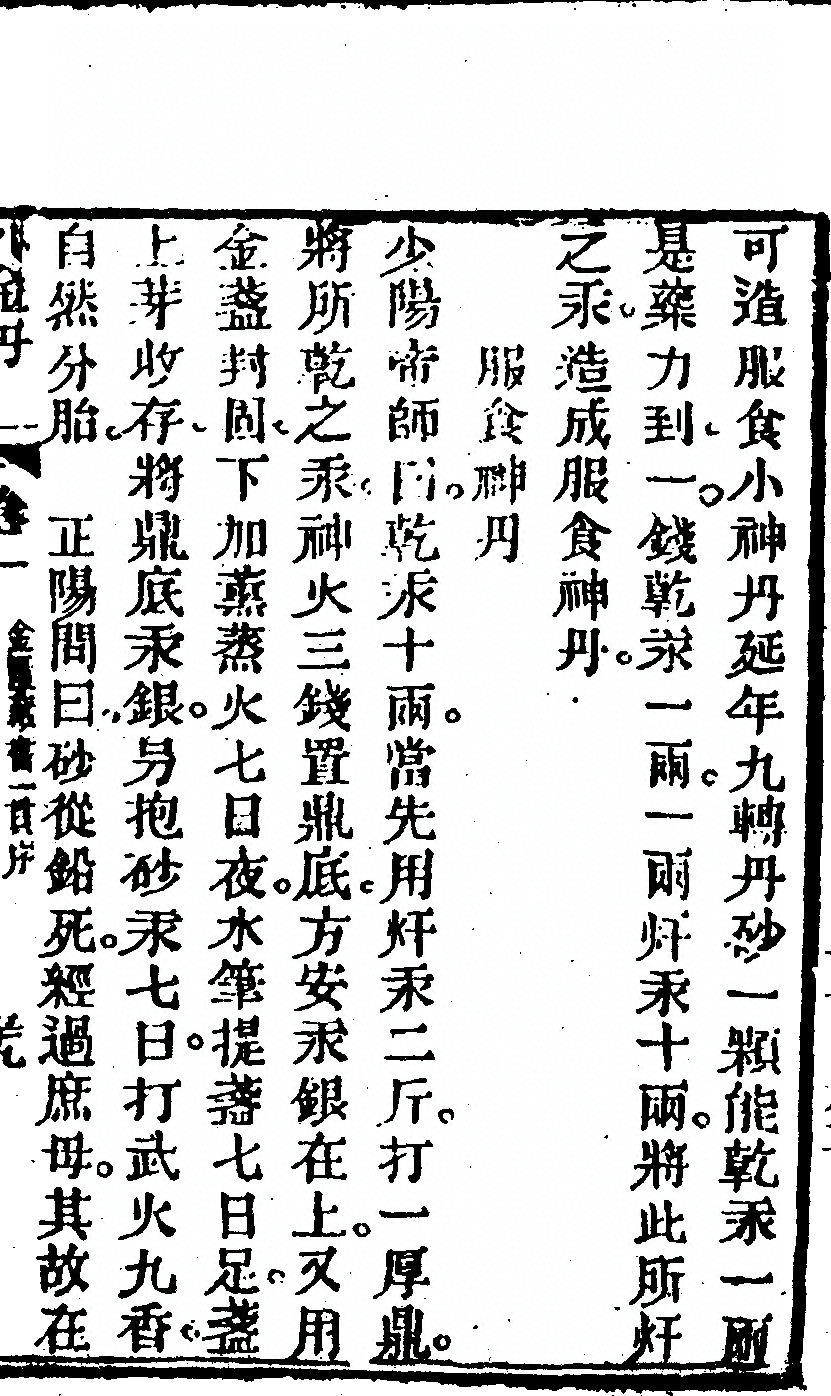 可造服食小神丹延年九轉丹砂一顆能乾汞一兩
是藥力到一錢乾汞一兩一兩㶥汞十兩將此所㶥
之汞造成服食神丹
服食神丹
少陽帝師曰乾汞十兩當先用㶥汞二斤打一厚鼎
將所乾之汞神火三錢置鼎底方安汞銀在上又用
金盞封固下加蒸蒸火七日夜水筆提盞七日足盞
上芽收存將鼎底汞銀另抱砂汞七日打武火九香
自然分胎 正陽問曰砂從鉛死經過庶母其故在
卷一